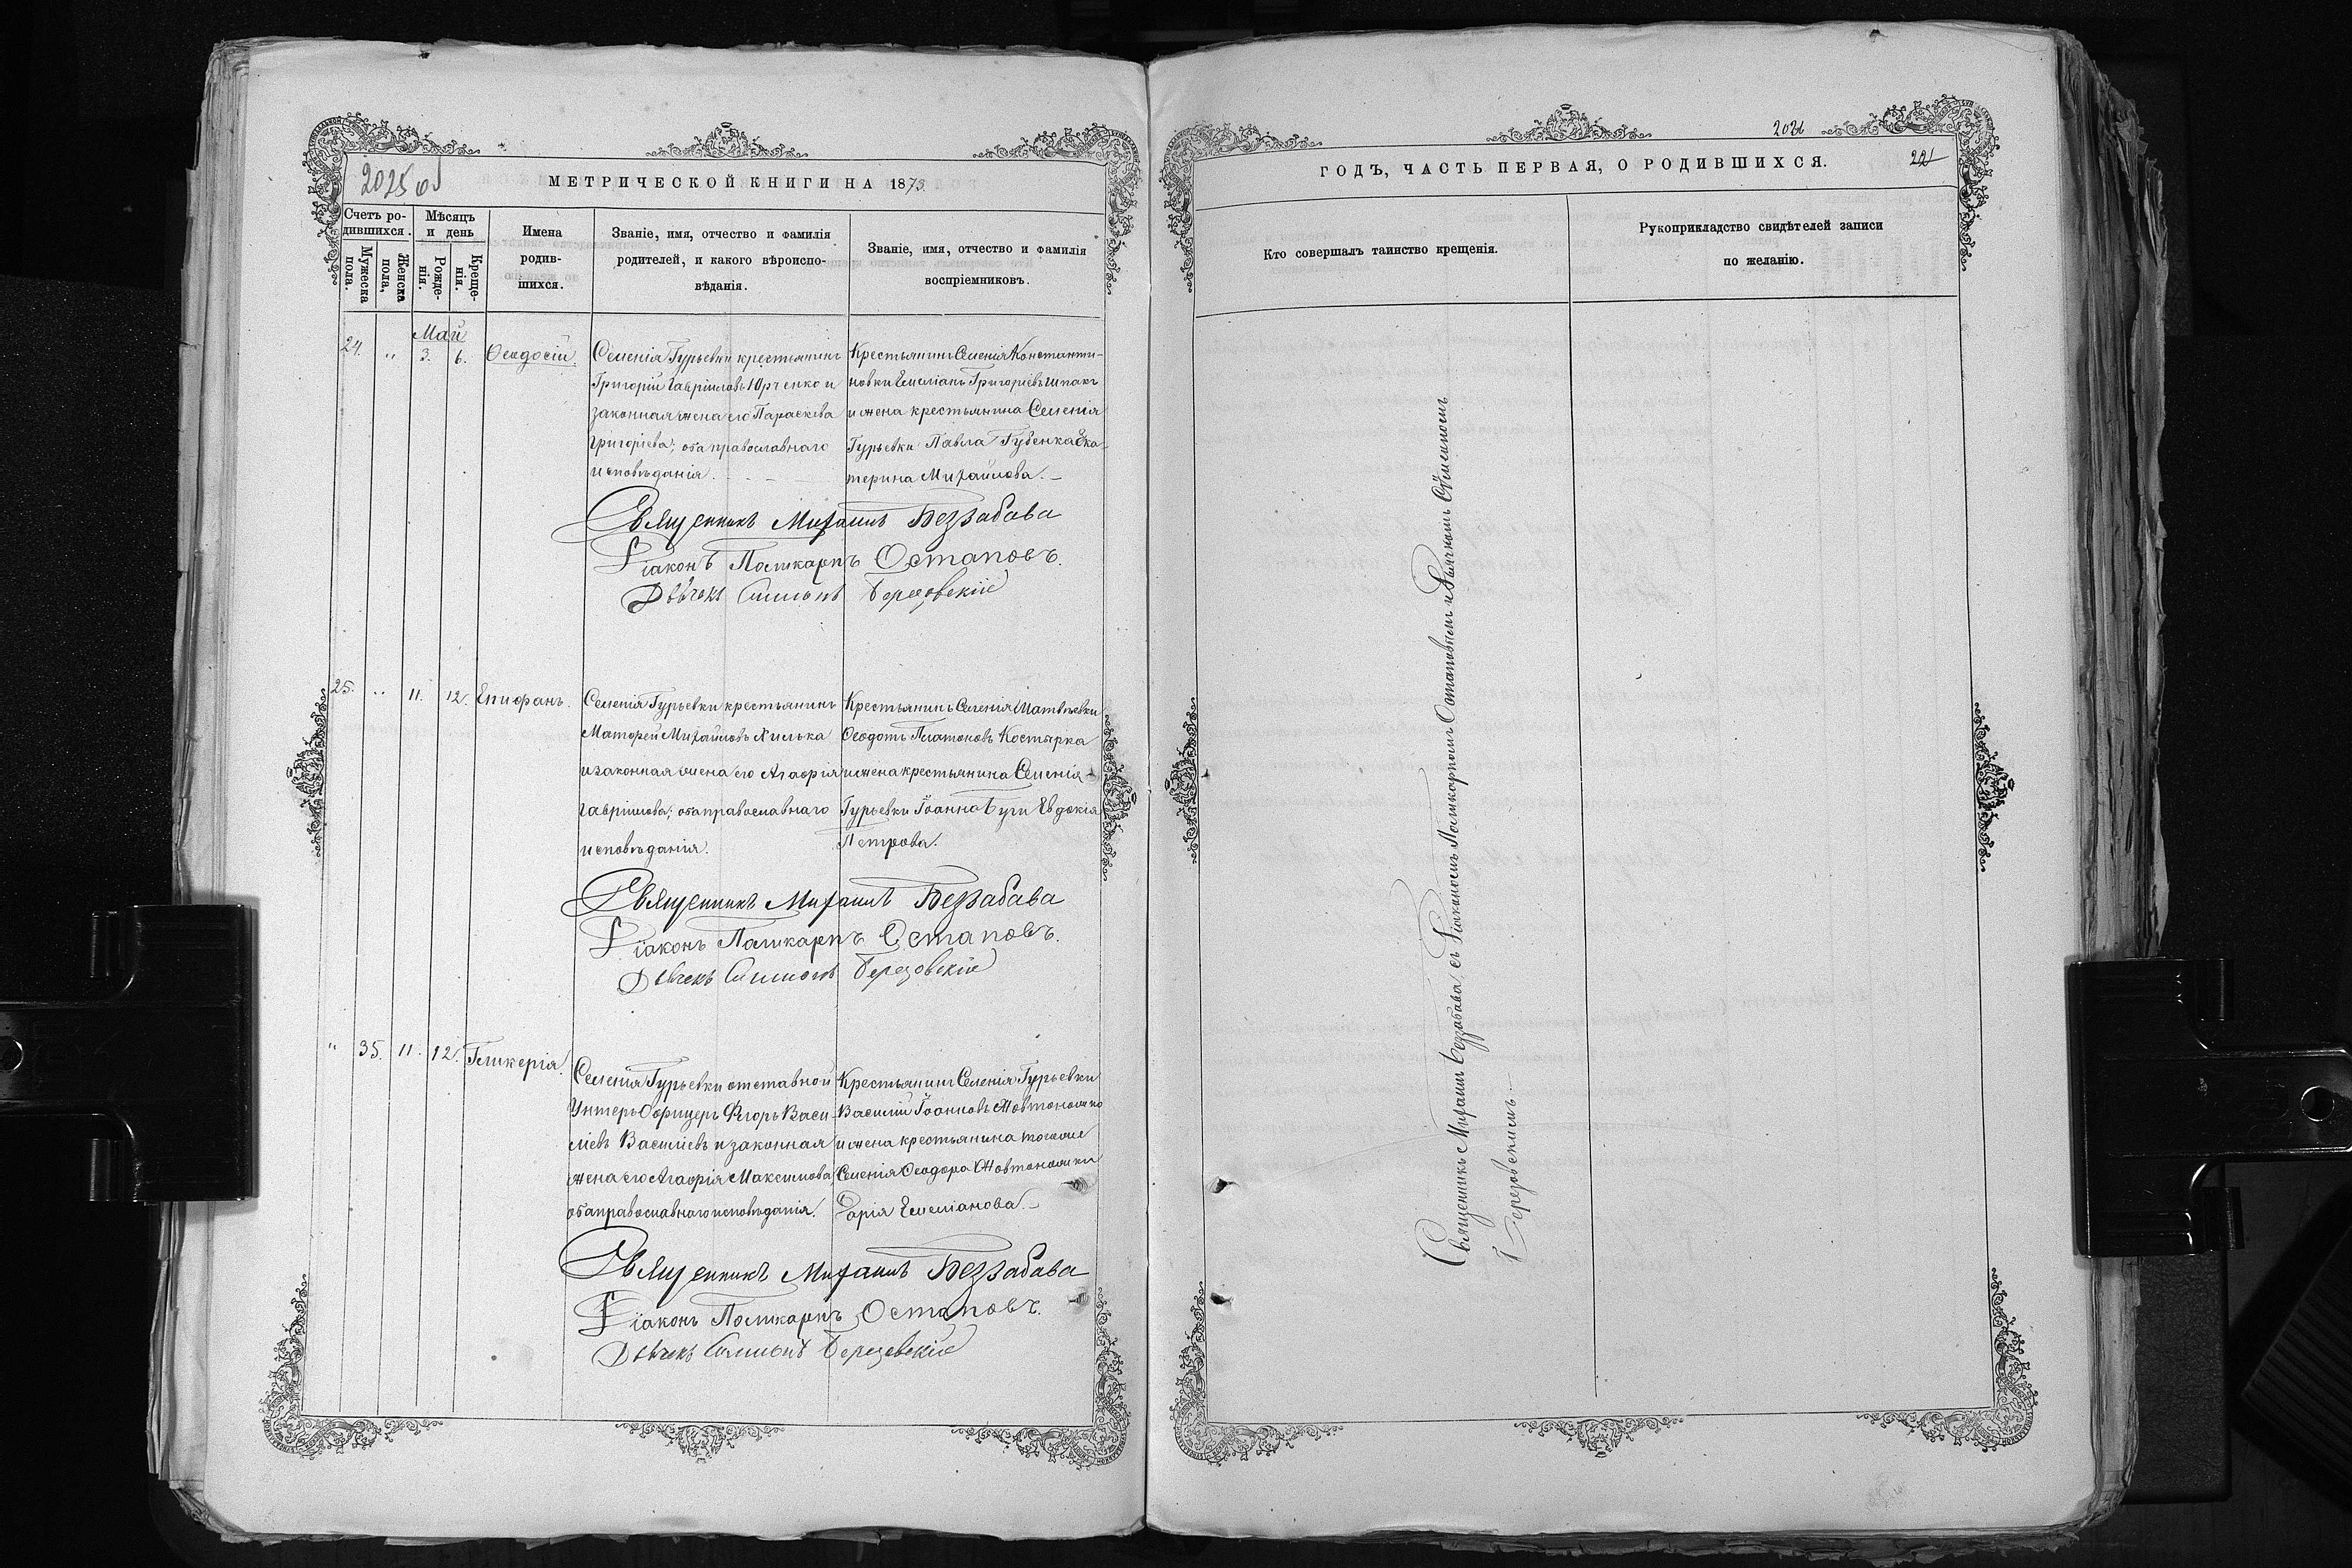 2025 об
МЕТРИЧЕСКОЙ КНИГИ НА 1873
Счетъ ро-
дившихся.
Мужеска
пола.
Женска
пола,
Мѣсяцъ
и день
Рожде-
нія.
Креще-
нія.
Имена
родив-
шихся.
Званіе, имя, отчество и фамилія
родителей, и какого вѣроиспо-
вѣданія.
Званіе, имя, отчество и фамилія
воспріемниковъ.
Май
24. " 3. 6. Ѳеодосій
Селенія Гурьевки крестьянинъ
Григорій Гавріиловъ Юрченко и
законная жена его Параскева
Григоріева; оба православнаго
исповѣданія.
Крестьянинъ Селенія Константи-
новки Емеліанъ Григоріевъ Шпакъ
и жена крестьянина Селенія
Гурьевки Павла Губенка Ека-
терина Михайлова.
Священникъ Михаилъ Беззабава
Діаконъ Поликарпъ Остаповъ.
Дьячекъ Симеонъ Березовскій
25. " 11. 12. Епифанъ.
Селенія Гурьевки крестьянинъ
Матфей Михайловъ Хилька
и законная жена его Агафія
Гавріилова; оба православнаго
исповѣданія.
Крестьянинъ Селенія Матвѣевки
Ѳеодотъ Платоновъ Костырка
и жена крестьянина Селенія
Гурьевки Іоанна Буги Евдокія
Петрова.
Священникъ Михаилъ Беззабава
Діаконъ Поликарпъ Остаповъ.
Дьячекъ Симеонъ Березовскій
" 35. 11. 12. Гликерія.
Селенія Гурьевки отставной
Унтеръ Офицеръ Егоръ Васи-
ліевъ Василіевъ и законная
жена его Агафія Максимова
оба православнаго исповѣданія.
Крестьянинъ Селенія Гурьевки
Василій Іоанновъ Жовтоножко
и жена крестьянина тогоже
Селенія Ѳеодора Жовтоножки
Дарія Емеліанова.
Священникъ Михаилъ Беззабава
Діаконъ Поликарпъ Остаповъ.
Дьячекъ Симеонъ Березовскій
2026
221
ГОДЪ, ЧАСТЬ ПЕРВАЯ, О РОДИВШИХСЯ.
Кто совершалъ таинство крещенія.
Рукоприкладство свидѣтелей записи
по желанію.
Священникъ Михаилъ Беззабава, съ Діакономъ Поликарпомъ Остаповымъ и Дьячкомъ Симеономъ
Березовскимъ